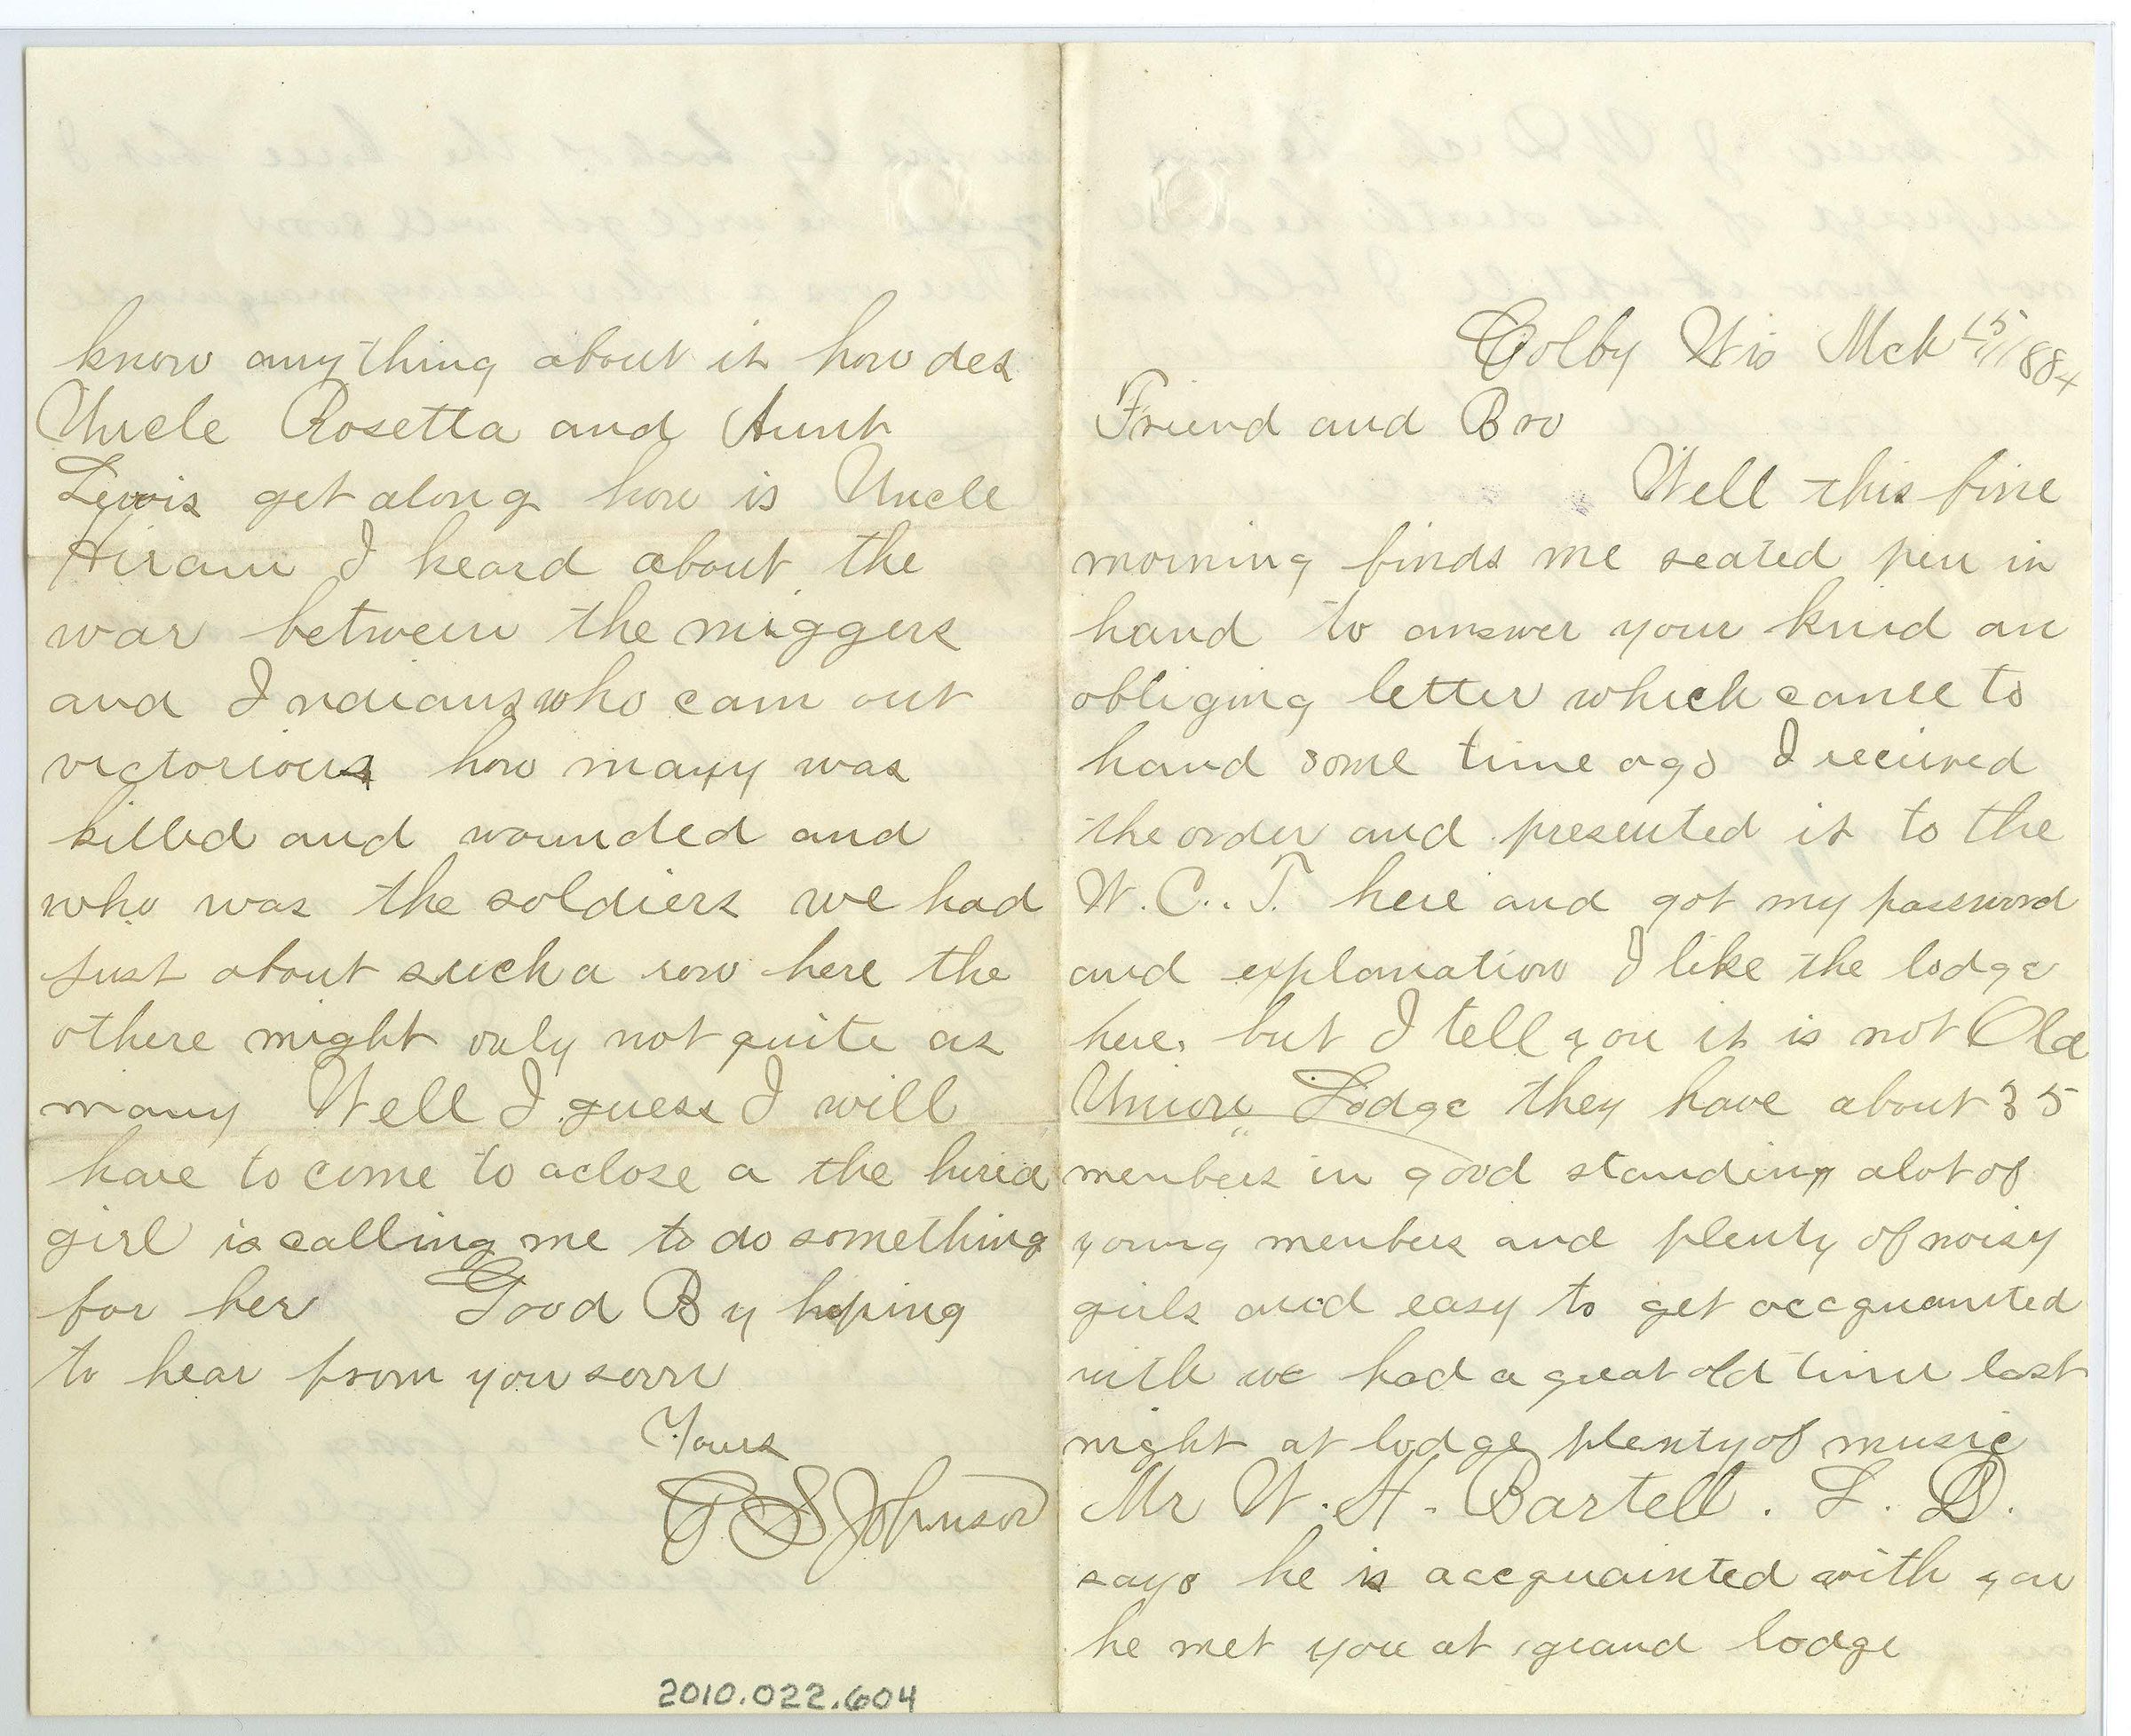 Colby Wis Mch 15/1884
Friend and Bro
Well this fine
morning finds me seated pen in
hand to answer your kind an
obliging letter which came to
hand some time ago I recieved
the order and presented it to the
W. C.. T. here and got my password
and explanation I like the lodge
here. but I tell you it is not Old
Union Lodge they have about 35
members in good standing alot of
young members and plenty of noisy
girls and easy to get accquainted
with we had a great old time last
night at lodge plenty of music
Mr W. H. Bartell. L. D.
says he is accquainted with you
he met you at grand lodge
know any thing about it how des
Uncle Rosetta and Aunt
Lewis get along how is Uncle
Hiram I heard about the
war between the niggers
and Indians who cam out
victorious how many was
killed and wounded and
who was the soldiers we had
just about such a row here the
othere night only not quite as
many Well I guess I will
have to come to a close a the hired
girl is calling me to do something
for her Good By hoping
to hear from you soon
Yours
S Johnson
2010.022.604